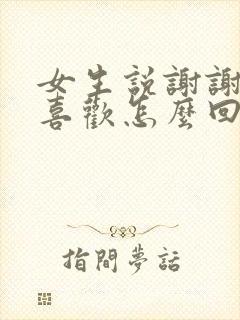 女生説謝謝
喜歡怎麼回
指間夢話